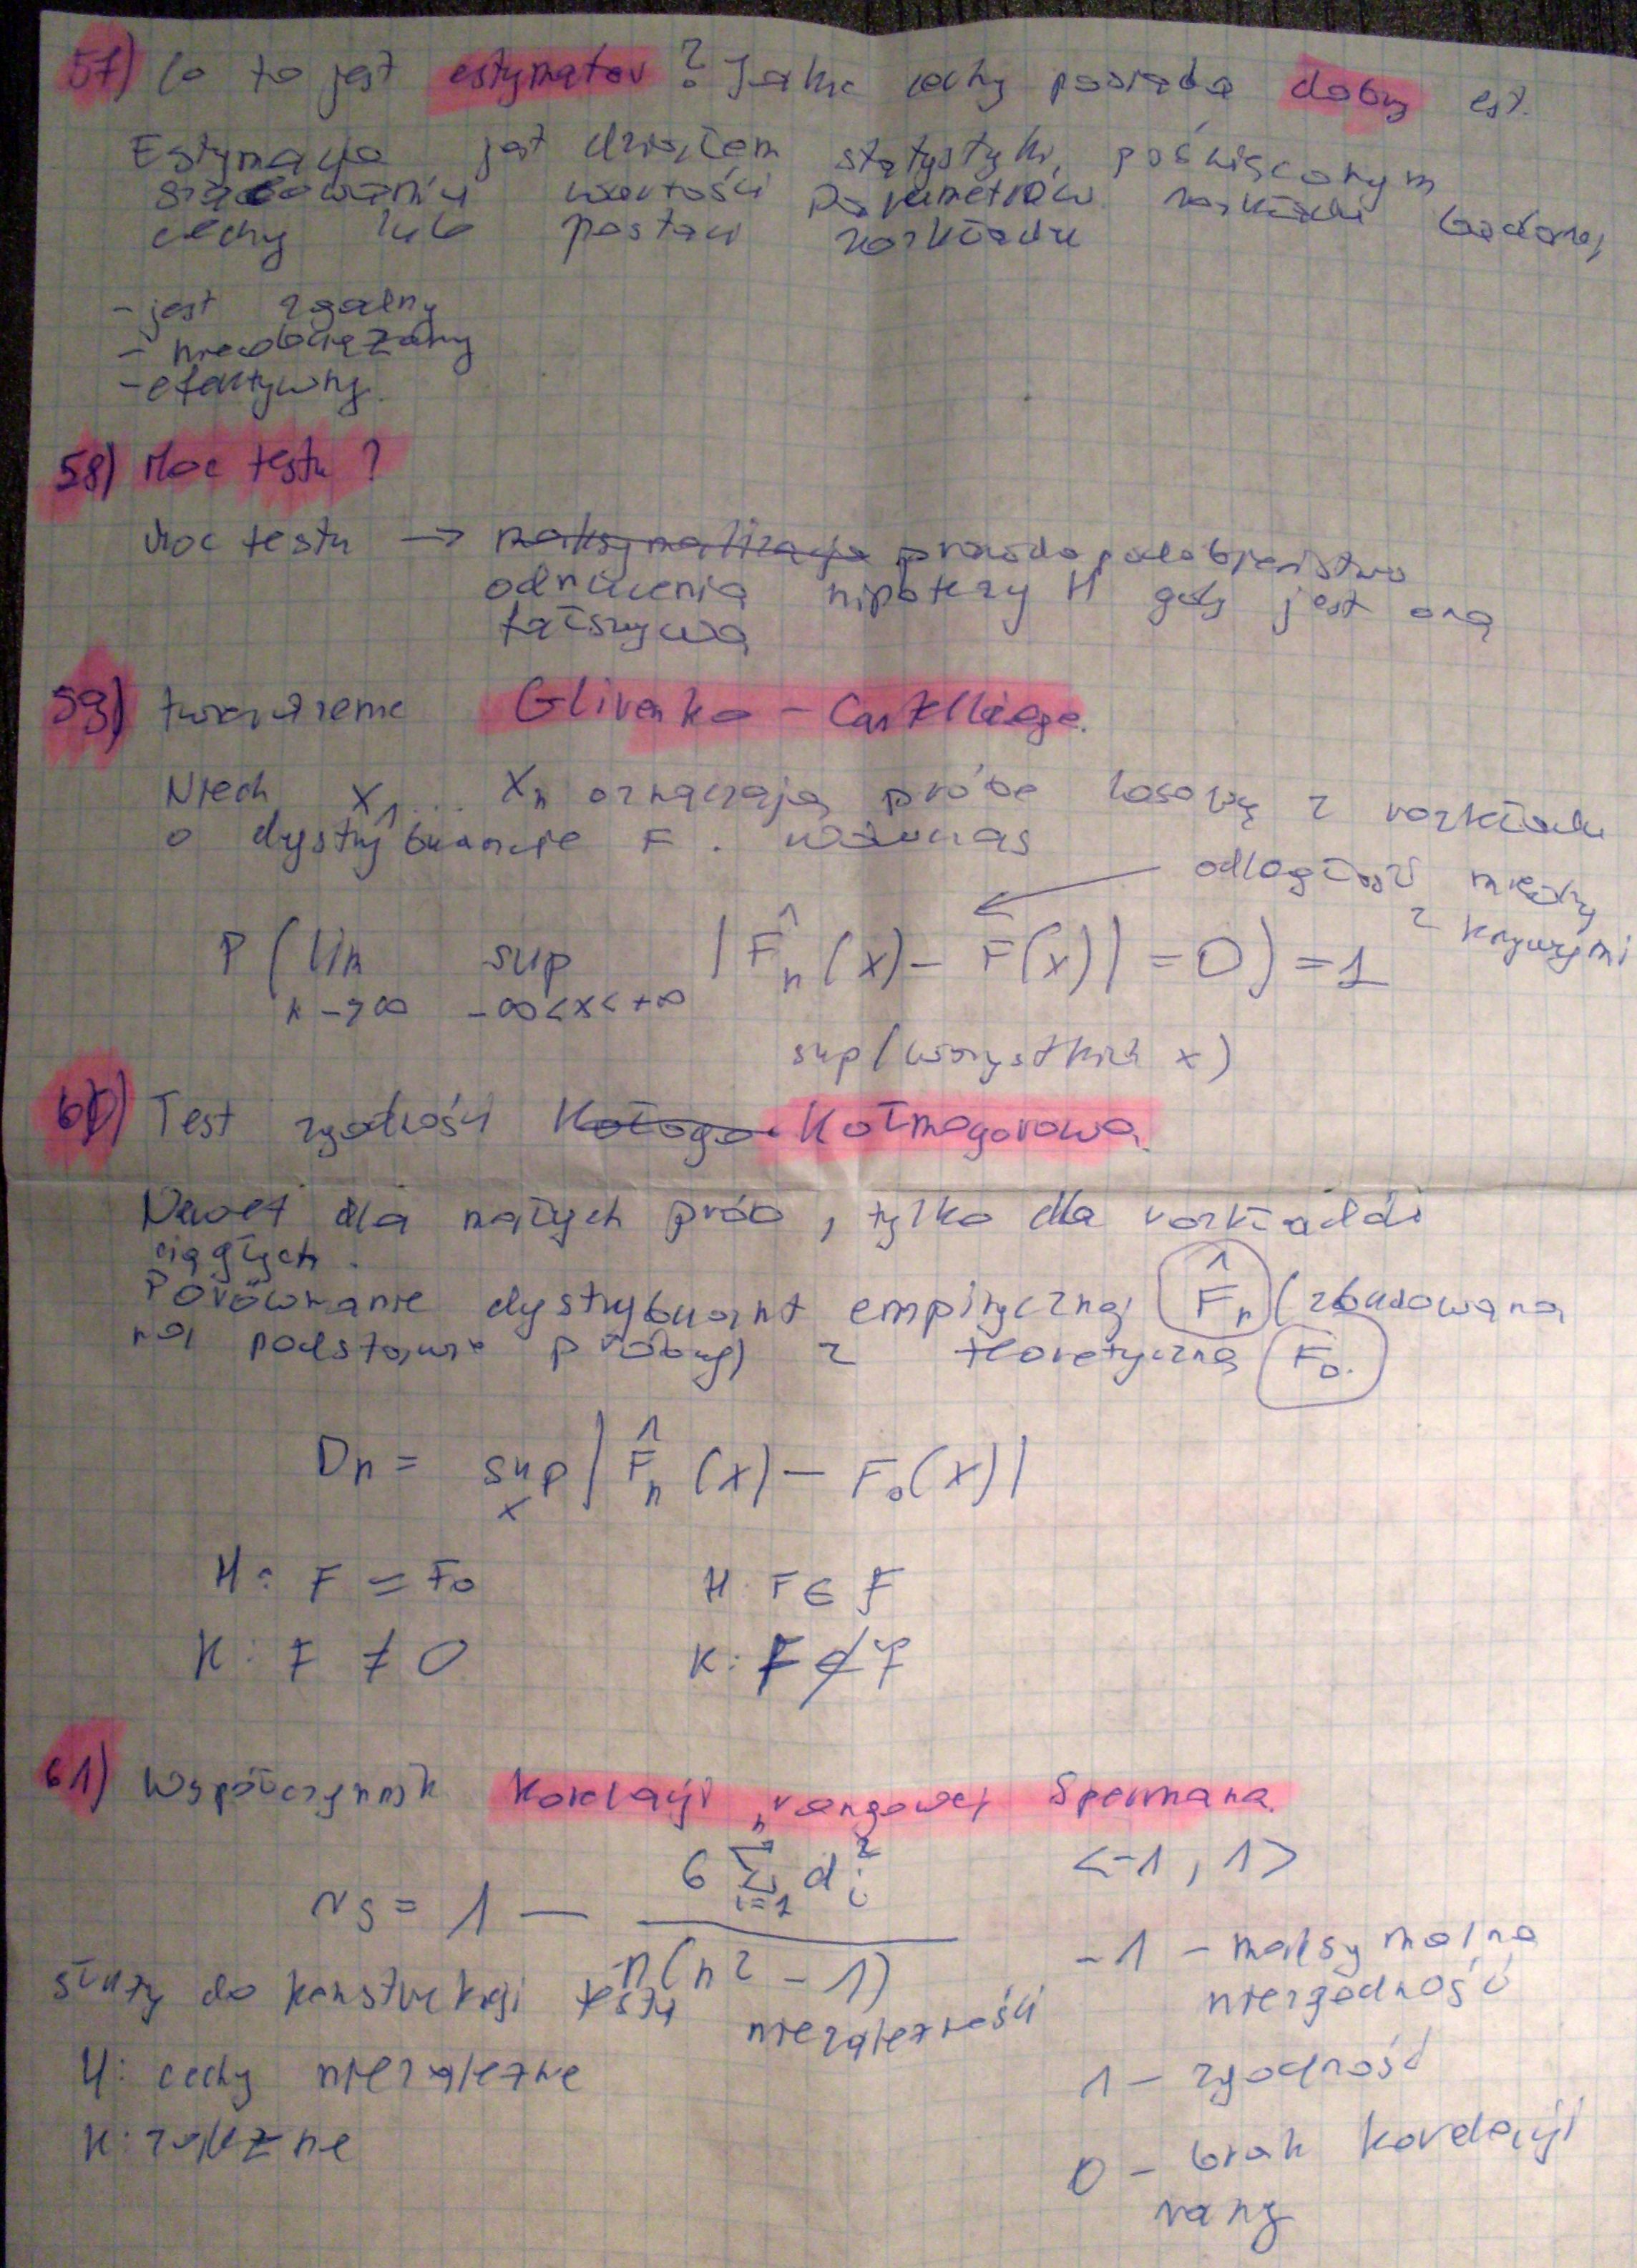 57) Co to jest estymator? Jakie cechy posiada dobry est.
Estymacja jest działem statystyki, poświęconym
szacowaniu wartości parametrów rozkładu badanej
cechy lub postaci rozkładu
- jest zgodny
- nieobciążony
- efektywny.
58) Moc testu?
Moc testu → maksymalizacja prawdopodobieństwo
odrzucenia hipotezy H gdy jest ona
fałszywa
59) twierdzenie Glivenko - Cantelliego.
Niech X1... Xn oznaczają próbę losową z rozkładu
o dystrybuancie F. wówczas
odległość między
2 krzywymi
P (lim n→∞ sup -∞<x<+∞ |F̂n(x) - F(x)| = 0) = 1
sup (wszystkich x)
60) Test zgodności Kołogo Kołmogorowa
Nawet dla małych prób, tylko dla rozkładów
ciągłych.
Porównanie dystrybuant empirycznej F̂n (zbudowana
na podstawie próby) z teoretyczną F0.
Dn = sup x |F̂n(x) - F0(x)|
H: F = F0 H: F ∈ F
K: F ≠ 0 K: F ∉ F
61) Współczynnik korelacji rangowej Spermana.
rs = 1 - 6 Σ n i=1 di² / n(n² - 1) <-1, 1>
-1 - maksymalna
niezgodność
służy do konstrukcji testu niezależności
H: cechy niezależne
1 - zgodność
K: zależne
0 - brak korelacji
rang